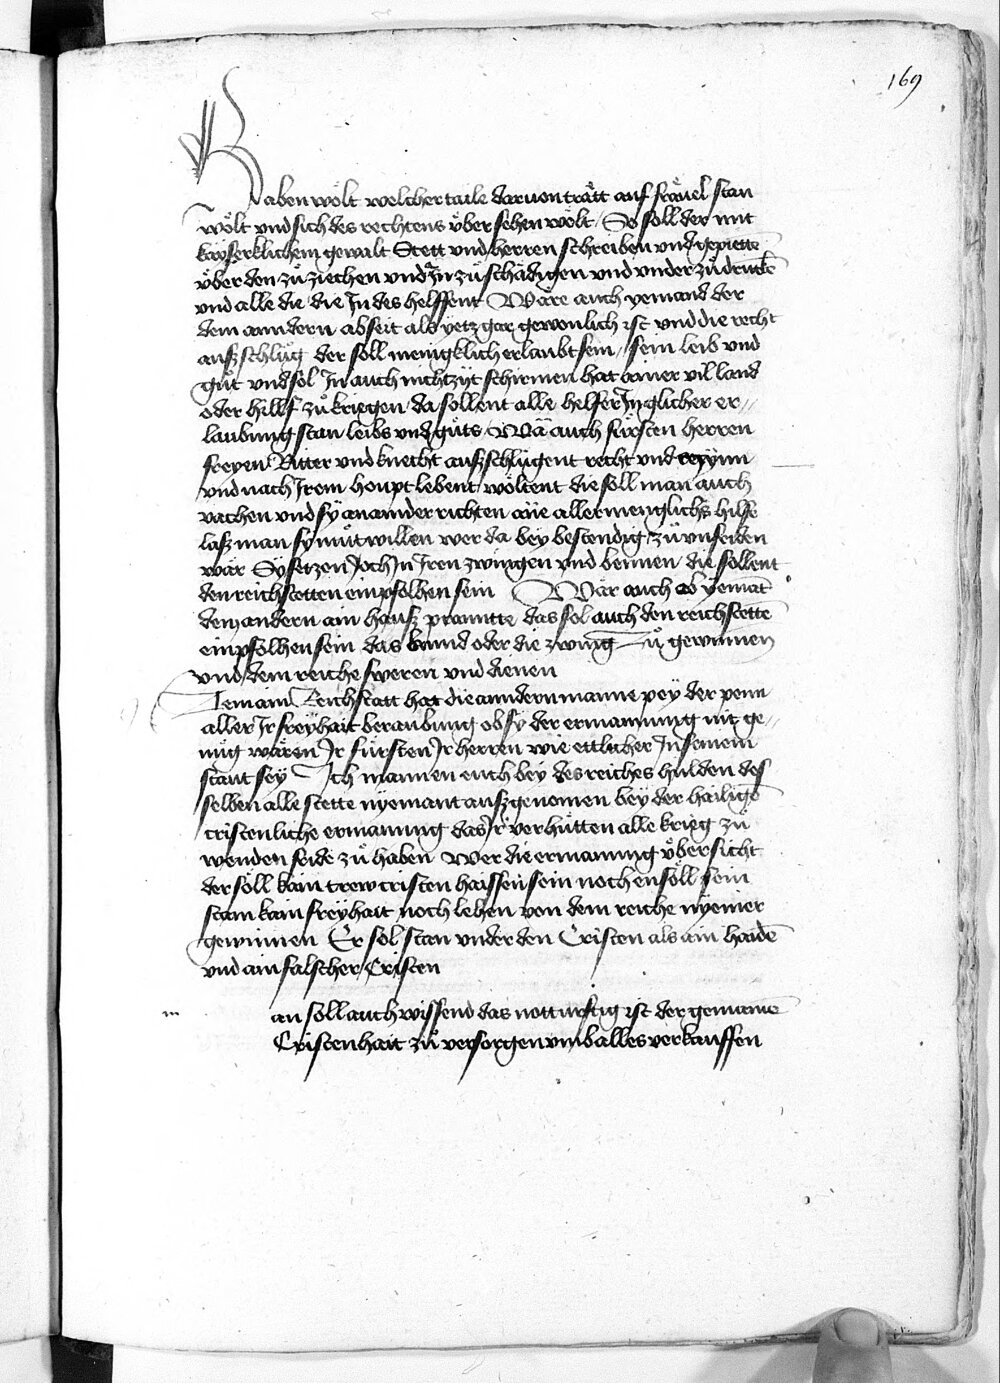 169
haben wölt welcher taile daruon trätt auf fräuel stan
wölt vnd sich des rechtens übersehen wölt / So soll der mit
kayserklichem gewalt Stett vnd herren schreiben vnd gepiettē
über den zů ziechen vnd In zů schädigen vnd vnder zů druckē
vnd alle die die In des helffent Wäre auch yemand der
dem anndern abseit als yetz gar gewonlich ist vnd die recht
aufzschlüg der soll menigklich erlaubt sein / sein leib vnd
gůt vnd sol In auch nichtzit schirmen hat ainer vil land
oder hillf zů kriegen da sollent alle helfer In glicher er-//
laubung stan leibs vnd gůts / Wä auch fürsten herren
freyen Ritter vnd knecht aufzschlügent recht vnd
vnd nach Irem houpt lebent wöltent die soll man auch
vachen vnd sy ananider richten āne allermenglichs hilfe
lasz man sy můtwillen wer da bey bestendig zů vnfriden
wär Sy setzen Joch In Iren zwingen vnd bennen die sollent
den reichstetten empfolhen sein Wär auch ob yemāt
dem andern ain hausz prannte das sol auch den reichstettē
empfolhen sein das lannd oder die zwing zů gewinnen
vnd dem reiche sweren vnd dienen
Item ain Reichstatt hat die anndern manne pey der penn
aller Ir freyhait beraubung ob sy der ermannung nit ge-//
nůg wären Ir fürsten Ir herren wie ettlicher In seinem
stant sey Ich mannen euch bey des reiches hulden des
selben alle stette nyemant aufzgenomen bey der hailigē
cristenliche ermanung das Ir verhütten alle krieg zů
wenden fride zů haben Wer die ermanung übersicht
der soll kain trew cristen haissen sein noch ensoll sein
stam kain freyhait noch lehen von dem reiche nyemer
gewinnen Er sol stan vnder den Cristen als ain haidē
vnd ain falscher Cristen
m
an soll auch wissend das notturftig ist der gemainē
Cristenhait zů versorgen vmb alles verkauffen